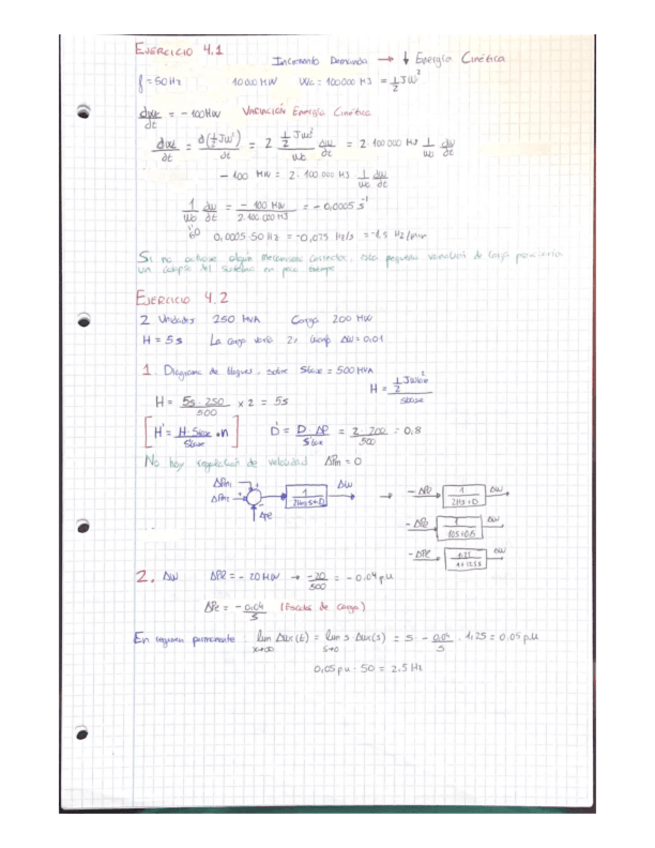 EJERCICIO 4.1
Incremento Demanda → ↓ Energía Cinética
f = 50 Hz 10000 MW Wc = 100000 MJ = 1/2 Jw²
dwc/dt = - 100 MW VARIACIÓN Energía Cinética
dwc/dt = d(1/2 Jw²)/dt = 2 (1/2 Jwo²)/wo dw/dt = 2 · 100 000 MJ 1/wo dw/dt
- 100 MW = 2 · 100 000 MJ 1/wo dw/dt
1/wo dw/dt = - 100 MW / 2 · 100 000 MJ = - 0,0005 s⁻¹
0,0005 · 50 Hz = -0,025 Hz/s = -1,5 Hz/min
Si no actuase algún mecanismo corrector, esta pequeña variación de carga
un colapso del sistema en poco tiempo
EJERCICIO 4.2
2 Unidades 250 MVA Carga 200 MW
H = 5 s La carga varía 2% cuando ΔW = 0,01
1. Diagrama de bloques, sobre Sbase = 500 MVA
H = (1/2 Jwo²)/Sbase
H = 5s · 250/500 x 2 = 5s
[H' = H · Sbase/S'base · n] D' = D · ΔP/Sbase = 2 · 200/500 = 0,8
No hay regulación de velocidad ΔPm = 0
ΔPm₁
ΔPm₂ 1/2Hs+D ΔW → - ΔPe 1/2Hs+D ΔW
ΔPe
- ΔPe ΔW
- ΔPe 1,25/1+12,5s ΔW
2. ΔW ΔPe = - 20 MW → -20/500 = - 0,04 pu
ΔPe = - 0,04/s (Escalón de carga)
En regimen permanente: lim Δw(t) = lim s · Δw(s) = s · - 0,04/s · 1,25 = 0.05 pu
0,05 pu · 50 = 2.5 Hz